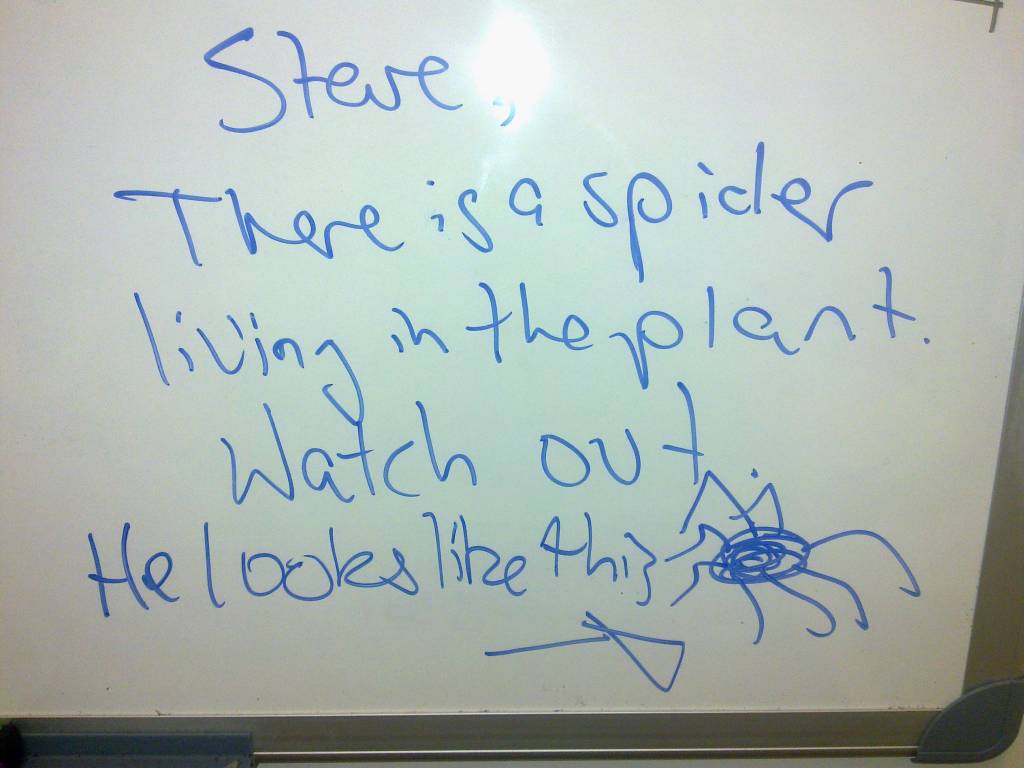 Steve,
There is a spider
living in the plant.
Watch out.
He looks like this